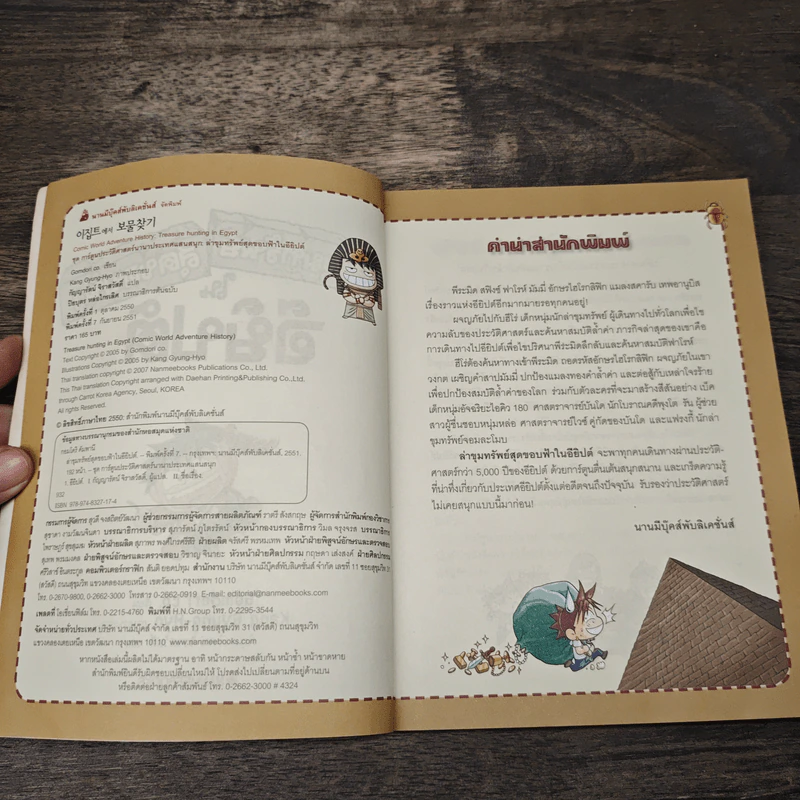 นานมีบุ๊คส์พับลิเคชั่นส์ จัดพิมพ์
이집트에서 보물찾기
Comic World Adventure History: Treasure hunting in Egypt
ชุด การ์ตูนประวัติศาสตร์นานาประเทศแสนสนุก ล่าขุมทรัพย์สุดขอบฟ้าในอียิปต์
Gomdori co. เขียน
Kang Gyung-Hyo ภาพประกอบ
กัญญารัตน์ จิราสวัสดิ์ แปล
ปิยะบุตร หล่อไกรเลิศ บรรณาธิการต้นฉบับ
พิมพ์ครั้งที่ 1 ตุลาคม 2550
พิมพ์ครั้งที่ 7 กันยายน 2551
ราคา 165 บาท
Treasure hunting in Egypt (Comic World Adventure History)
Text Copyright © 2005 by Gomdori co.
Illustrations Copyright © 2005 by Kang Gyung-Hyo.
Thai Translation Copyright © 2007 Nanmeebooks Publications Co., Ltd.
This Thai translation Copyright arranged with Daehan Printing&Publishing Co., Ltd.
through Carrot Korea Agency, Seoul, KOREA
All rights Reserved.
© ลิขสิทธิ์ภาษาไทย 2550: สำนักพิมพ์นานมีบุ๊คส์พับลิเคชั่นส์
ข้อมูลทางบรรณานุกรมของสำนักหอสมุดแห่งชาติ
กอมโดริ คัมพานี
ล่าขุมทรัพย์สุดขอบฟ้าในอียิปต์. -- พิมพ์ครั้งที่ 7. -- กรุงเทพฯ: นานมีบุ๊คส์พับลิเคชั่นส์, 2551.
192 หน้า. -- ชุด การ์ตูนประวัติศาสตร์นานาประเทศแสนสนุก
1. อียิปต์. I. กัญญารัตน์ จิราสวัสดิ์, ผู้แปล. II. ชื่อเรื่อง.
932
ISBN 978-974-8327-17-4
กรรมการผู้จัดการ สุวดี จงสถิตย์วัฒนา ผู้ช่วยกรรมการผู้จัดการสายผลิตภัณฑ์ ราตรี สังสกฤษ ผู้จัดการสำนักพิมพ์กองวิชาการ
บรรณาธิการบริหาร สุภารัตน์ ภู่ไตรรัตน์ หัวหน้ากองบรรณาธิการ วิมล จรุงจรส บรรณาธิการ
หัวหน้าฝ่ายผลิต สุภาพร พงศ์ไกรศรีสิริ ฝ่ายผลิต จรัสศรี พรหมเทพ หัวหน้าฝ่ายพิสูจน์อักษรและตรวจสอบ
สุเทพ พรมมงคล ฝ่ายพิสูจน์อักษรและตรวจสอบ วิชาญ จีนายะ หัวหน้าฝ่ายศิลปกรรม กฤษดา เส่งสงค์ ฝ่ายศิลปกรรม
คอมพิวเตอร์กราฟิก สันติ ยอดปทุม สำนักงาน บริษัท นานมีบุ๊คส์พับลิเคชั่นส์ จำกัด เลขที่ 11 ซอยสุขุมวิท 31
(สวัสดี) ถนนสุขุมวิท แขวงคลองเตยเหนือ เขตวัฒนา กรุงเทพฯ 10110
โทร. 0-2670-9800, 0-2662-3000 โทรสาร 0-2662-0919 E-mail: editorial@nanmeebooks.com
เพลตที่ โซเชี่ยนฟิล์ม โทร. 0-2215-4760 พิมพ์ที่ H.N.Group โทร. 0-2295-3544
จัดจำหน่ายทั่วประเทศ บริษัท นานมีบุ๊คส์ จำกัด เลขที่ 11 ซอยสุขุมวิท 31 (สวัสดี) ถนนสุขุมวิท
แขวงคลองเตยเหนือ เขตวัฒนา กรุงเทพฯ 10110 www.nanmeebooks.com
หากหนังสือเล่มนี้ผลิตไม่ได้มาตรฐาน อาทิ หน้ากระดาษสลับกัน หน้าซ้ำ หน้าขาดหาย
สำนักพิมพ์ยินดีรับผิดชอบเปลี่ยนใหม่ให้ โปรดส่งไปเปลี่ยนตามที่อยู่ด้านบน
หรือติดต่อฝ่ายลูกค้าสัมพันธ์ โทร. 0-2662-3000 # 4324
คำนำสำนักพิมพ์
พีระมิด สฟิงซ์ ฟาโรห์ มัมมี่ อักษรไฮโรกลิฟิก แมลงสคารับ เทพอานูบิส
เรื่องราวแห่งอียิปต์อีกมากมายรอทุกคนอยู่!
ผจญภัยไปกับฮีโร่ เด็กหนุ่มนักล่าขุมทรัพย์ ผู้เดินทางไปทั่วโลกเพื่อไข
ความลับของประวัติศาสตร์และค้นหาสมบัติล้ำค่า ภารกิจล่าสุดของเขาคือ
การเดินทางไปอียิปต์เพื่อไขปริศนาพีระมิดลึกลับและค้นหาสมบัติฟาโรห์
ฮีโร่ต้องค้นหาทางเข้าพีระมิด ถอดรหัสอักษรไฮโรกลิฟิก ผจญภัยในเขา
วงกต เผชิญคำสาปมัมมี่ ปกป้องแมลงทองคำล้ำค่า และต่อสู้กับเหล่าโจรร้าย
เพื่อปกป้องสมบัติล้ำค่าของโลก ร่วมกับตัวละครที่จะมาสร้างสีสันอย่าง เบ็ค
เด็กหนุ่มอัจฉริยะไอคิว 180 ศาสตราจารย์บันโด นักโบราณคดีพุงโต รัน ผู้ช่วย
สาวผู้ชื่นชอบหนุ่มหล่อ ศาสตราจารย์ไวซ์ คู่กัดของบันโด และแฟรงกี้ นักล่า
ขุมทรัพย์จอมละโมบ
ล่าขุมทรัพย์สุดขอบฟ้าในอียิปต์ จะพาทุกคนเดินทางผ่านประวัติ-
ศาสตร์กว่า 5,000 ปีของอียิปต์ ด้วยการ์ตูนตื่นเต้นสนุกสนาน และเกร็ดความรู้
ที่น่าทึ่งเกี่ยวกับประเทศอียิปต์ตั้งแต่อดีตจนถึงปัจจุบัน รับรองว่าประวัติศาสตร์
ไม่เคยสนุกแบบนี้มาก่อน!
นานมีบุ๊คส์พับลิเคชั่นส์